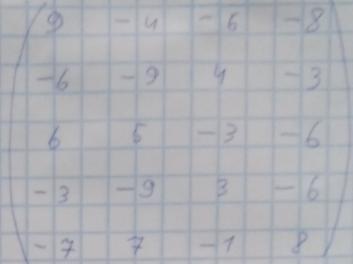 9 -4 -6 -8
-6 -9 4 -3
6 5 -3 -6
-3 -9 3 -6
-7 7 -1 8